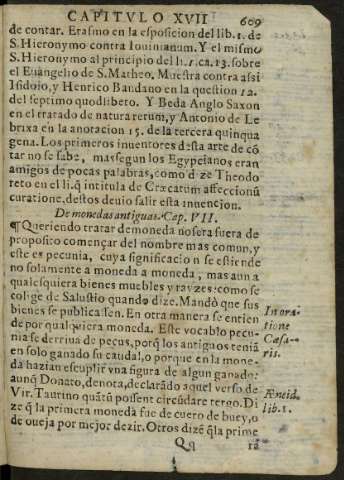 CAPITVLO XVII 609
de contar. Erasmo en la esposicion del lib. 1. de
S. Hieronymo contra Iouinianum. Y el mismo
S. Hieronymo al principio del li. 1. ca. 13. sobre
el Euangelio de S. Matheo. Muestra contra assi
Isidoio, y Henrico Bandano en la question 12.
del septimo quodlibeto. Y Beda Anglo Saxon
en el tratado de natura rerum, y Antonio de Le
brixa en la anotacion 15. de la tercera quinqua
gena. Los primeros inuentores desta arte de cõ
tar no se sabe, mas segun los Egypcianos eran
amigos de pocas palabras, como dize Theodo
reto en el li. q̃ intitula de Cræcatum affeccionũ
curatione. destos deuio salir esta inuencion.
De monedas antiguas. Cap. VII.
¶ Queriendo tratar de moneda no sera fuera de
proposito començar del nombre mas comun, y
este es pecunia, cuya significacion se estiende
no solamente a moneda a moneda, mas aun a
qualesquiera bienes muebles y rayzes: como se
colige de Salustio quando dize. Mandò que sus
bienes se publicassen. En otra manera se entien
de por qualquiera moneda. Este vocablo pecu-
nia se derriua de pecus, porq̃ los antiguos teniã
en solo ganado su caudal, o porque en la mone-
da hazian esculpir vna figura de algun ganado:
aunq̃ Donato, denota, declarãdo aquel verso de
Vir. Taurino quãtũ possent circũdare tergo. Di
ze q̃ la primera moneda fue de cuero de buey, o
de oueja por mejor dezir. Otros dizẽ q̃ la prime
Qq ra
In ora-
tione
Cæsa-
ris.
Æneid.
lib. 1.